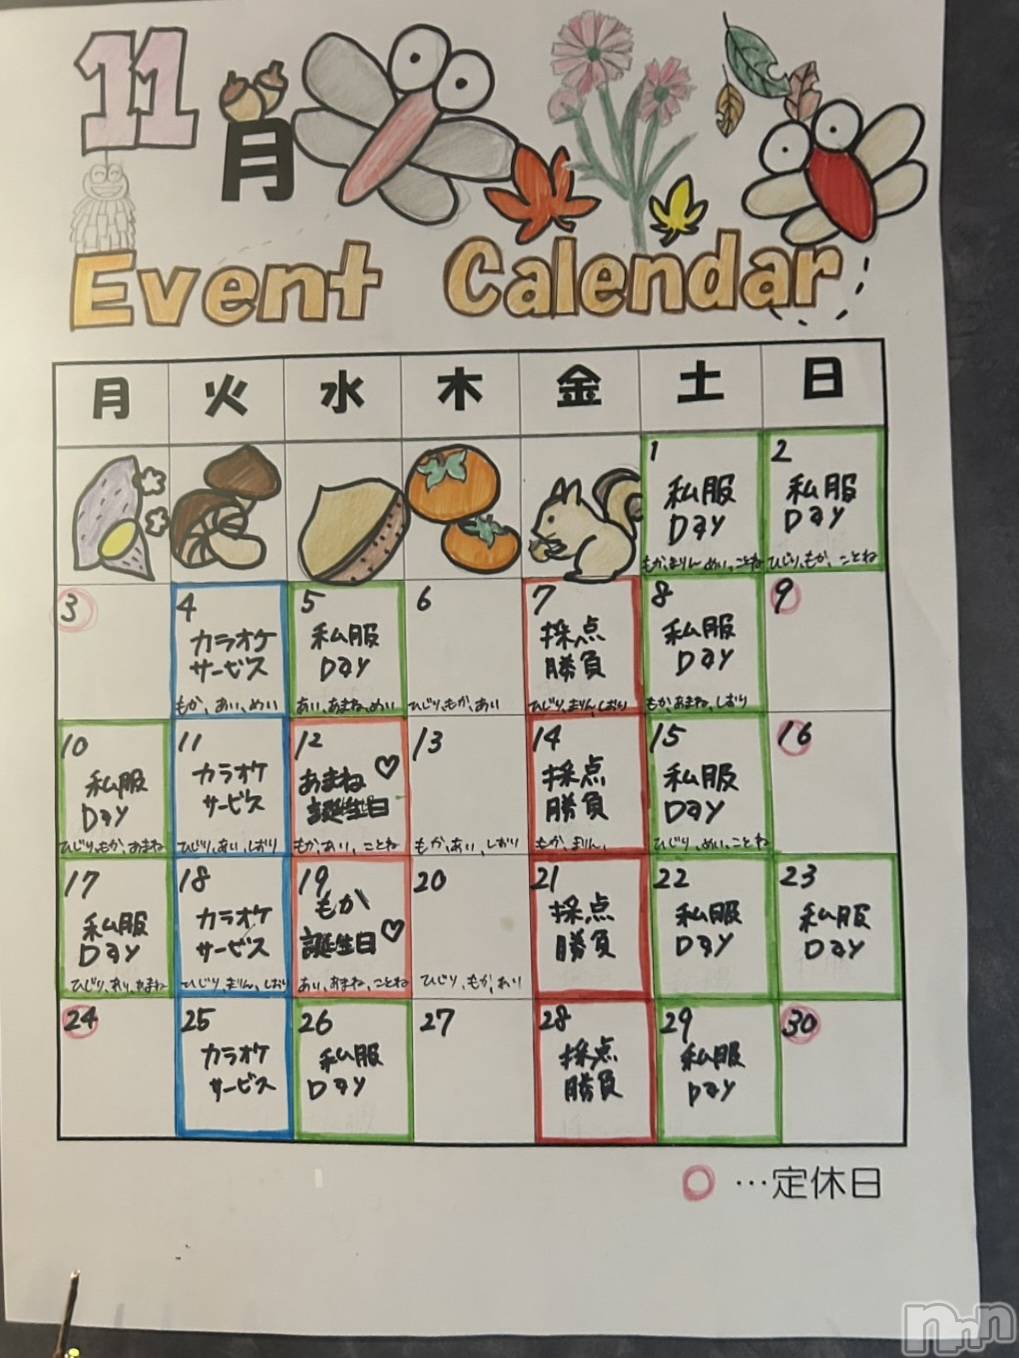 11月
Event Calendar
月 火 水 木 金 土 日
1 私服 Day もか、まりん、めい、ことね
2 私服 Day ひじり、もか、ことね
3
4 カラオケ サービス もか、あい、めい
5 私服 Day あい、あまね、めい
6 ひじり、もか、あい
7 採点 勝負 ひじり、まりん、しおり
8 私服 Day もか、あまね、しおり
9
10 私服 Day ひじり、もか、あまね
11 カラオケ サービス ひじり、あい、しおり
12 あまね♡ 誕生日 もか、あい、ことね
13 もか、あい、しおり
14 採点 勝負 もか、まりん、
15 私服 Day ひじり、めい、ことね
16
17 私服 Day ひじり、あまね
18 カラオケ サービス ひじり、まりん、しおり
19 もか 誕生日♡ あい、あまね、ことね
20 ひじり、もか、あい
21 採点 勝負
22 私服 Day
23 私服 Day
24
25 カラオケ サービス
26 私服 Day
27
28 採点 勝負
29 私服 Day
30
○…定休日
nnn